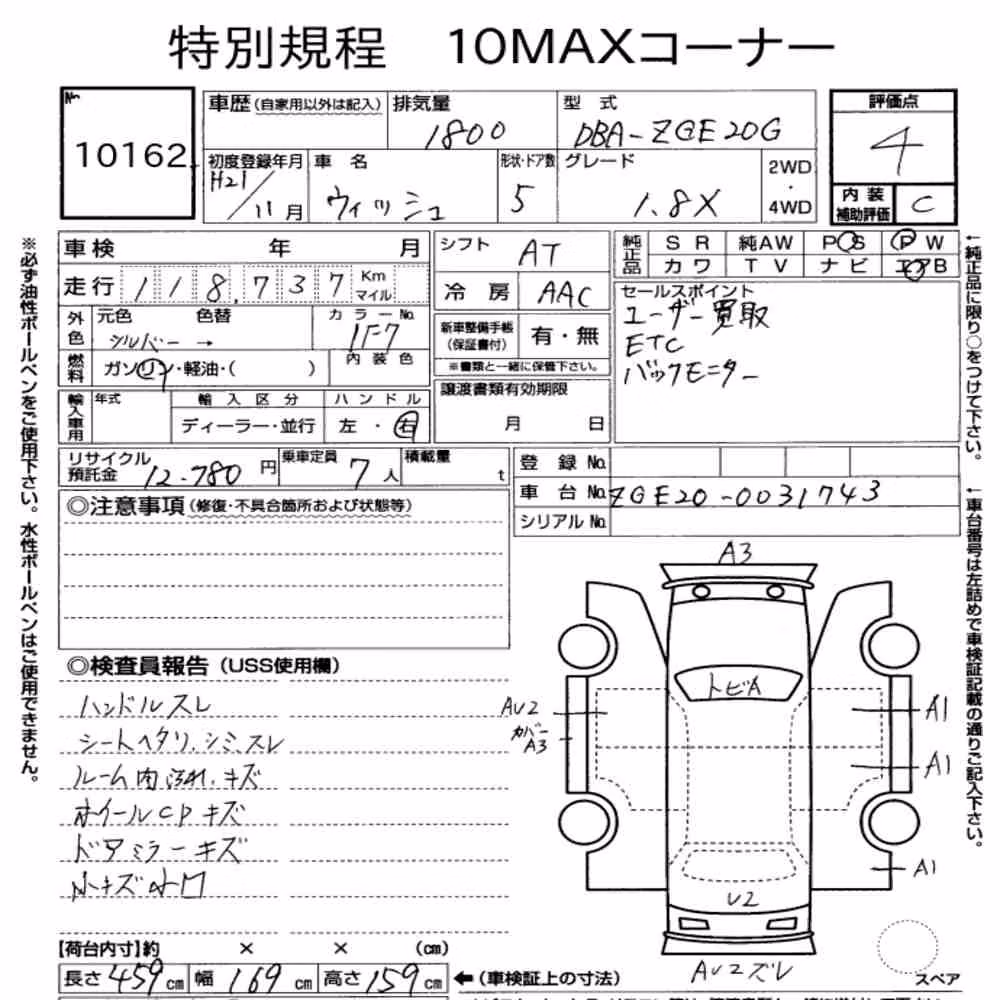 特別規程 10MAXコーナー
No. 10162
車歴(自家用以外は記入)
排気量 1800
型式 DBA-ZGE20G
評価点 4
初度登録年月 H21/11月
車名 ウィッシュ
形状・ドア数 5
グレード 1.8X
2WD・4WD
内装補助評価 C
車検 年 月
シフト AT
純正品 SR 純AW PS PW
カワ TV ナビ エアB
走行 118,737 Km マイル
冷房 AAC
セールスポイント
ユーザー買取
ETC
バックモニター
外色 元色 色替 カラーNo.
シルバー → 1F7
新車整備手帳(保証書付) 有・無
※書類と一緒に保管下さい。
燃料 ガソリン・軽油・( ) 内装色
譲渡書類有効期限
月 日
輸入車用 年式 輸入区分 ハンドル
ディーラー・並行 左・右
リサイクル預託金 12.780円
乗車定員 7人
積載量 t
登録No.
車台No. ZGE20-0031743
シリアルNo.
◎注意事項(修復・不具合箇所および状態等)
◎検査員報告(USS使用欄)
ハンドルスレ
シートヘタリ、シミ、スレ
ルーム内汚れ、キズ
ホイールCPキズ
ドアミラーキズ
小キズ小凹
A3
トビA
AU2
カバーA3
A1
A1
A1
U2
AU2ズレ
スペア
【荷台内寸】約 × × (cm)
長さ459cm 幅169cm 高さ159cm ←(車検証上の寸法)
※必ず油性ボールペンをご使用下さい。水性ボールペンはご使用できません。
←純正品に限り○をつけて下さい。
←車台番号は左詰めで車検証記載の通りご記入下さい。